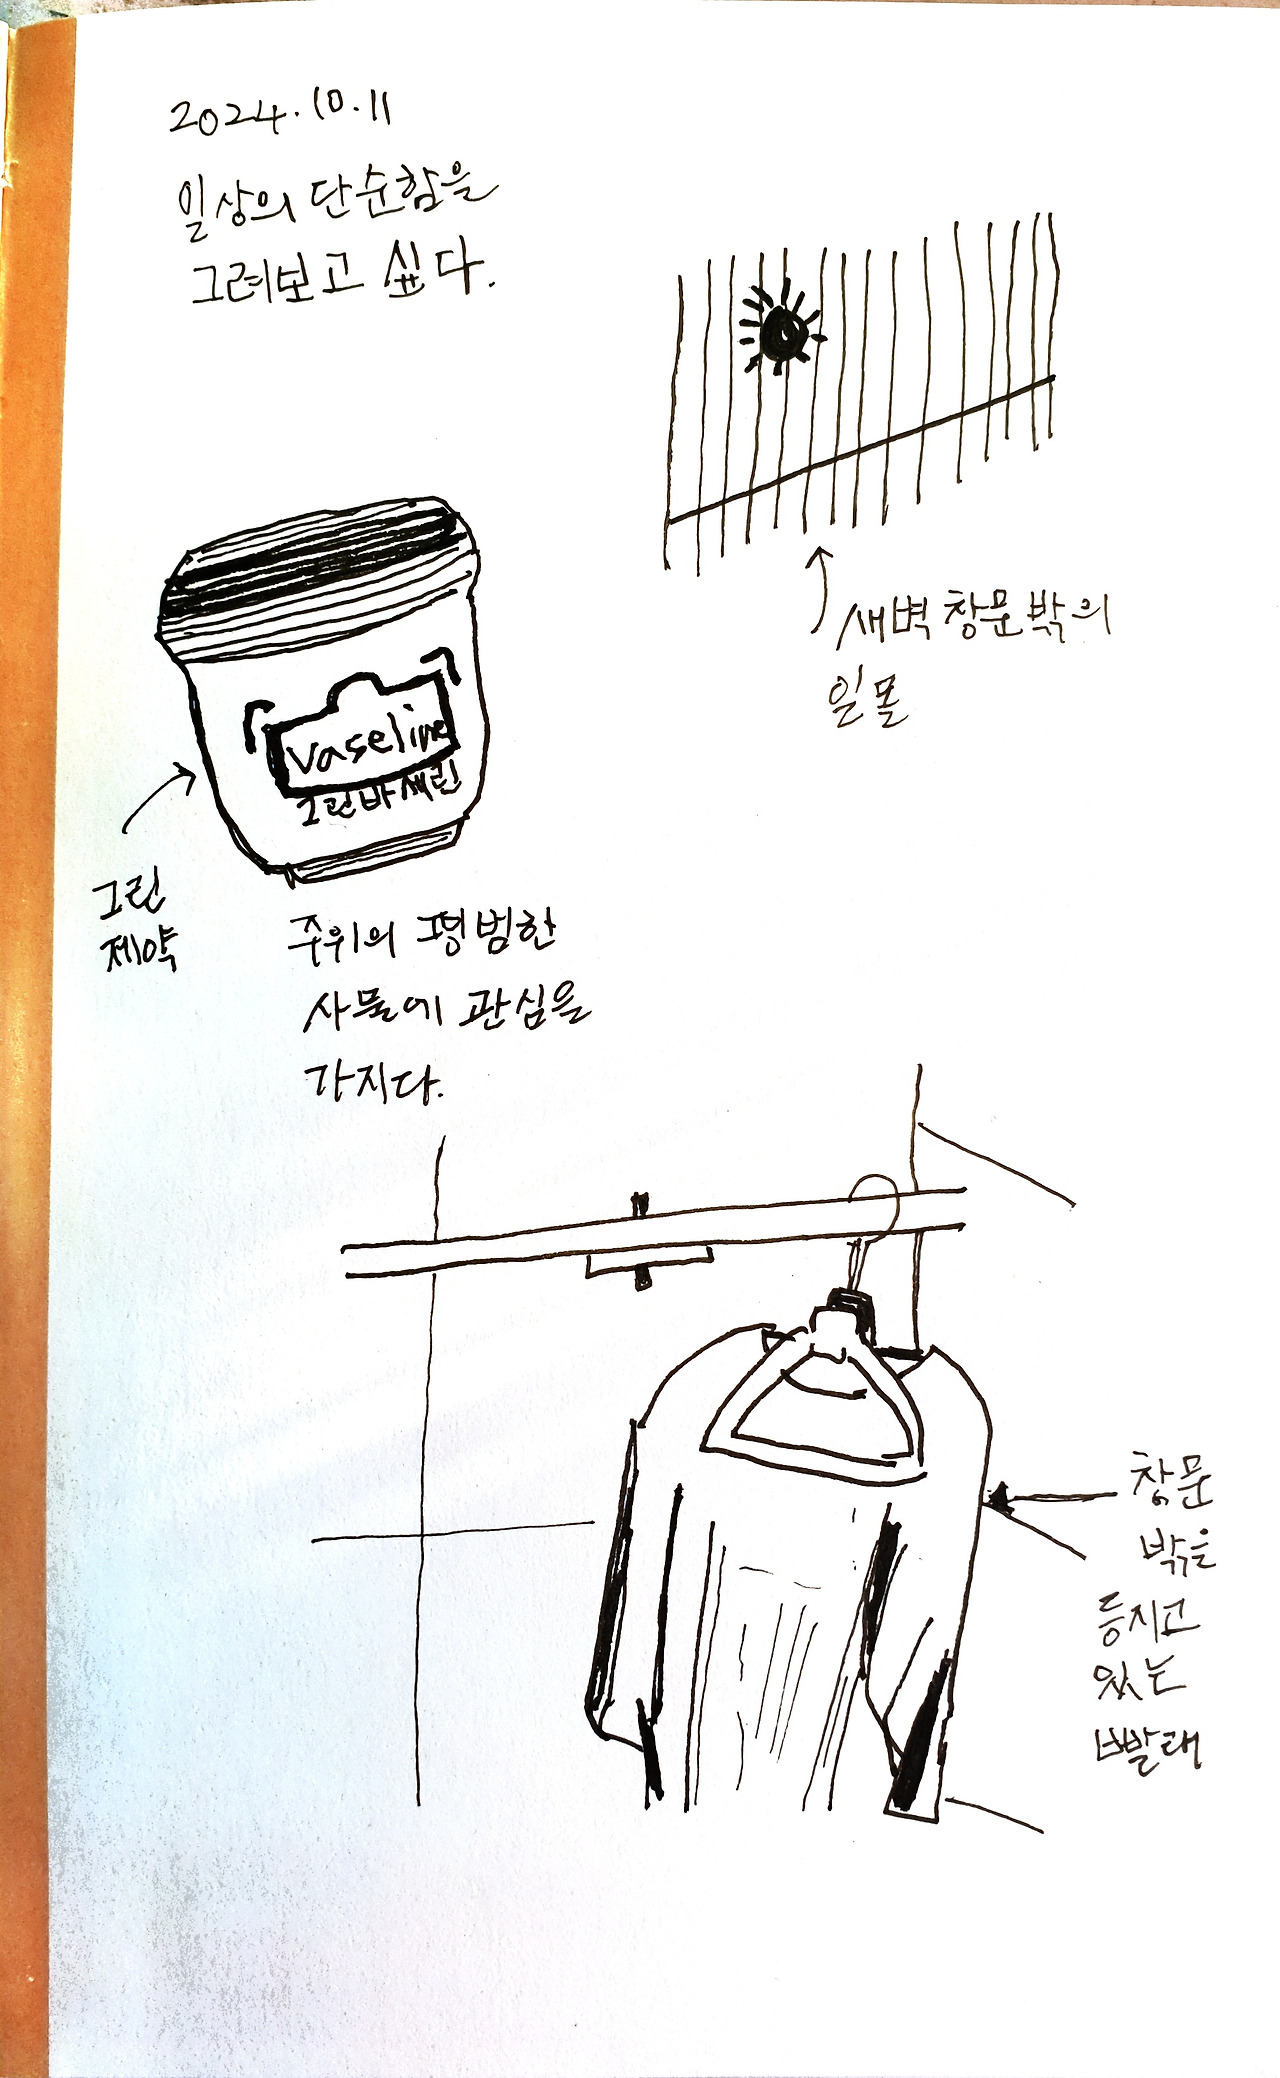 2024.10.11
일상의 단순함을
그려보고 싶다.
새벽 창문 밖의
일몰
Vaseline
그린바세린
그린
제약
주위의 평범한
사물에 관심을
가지다.
창문
밖을
등지고
있는
빨래